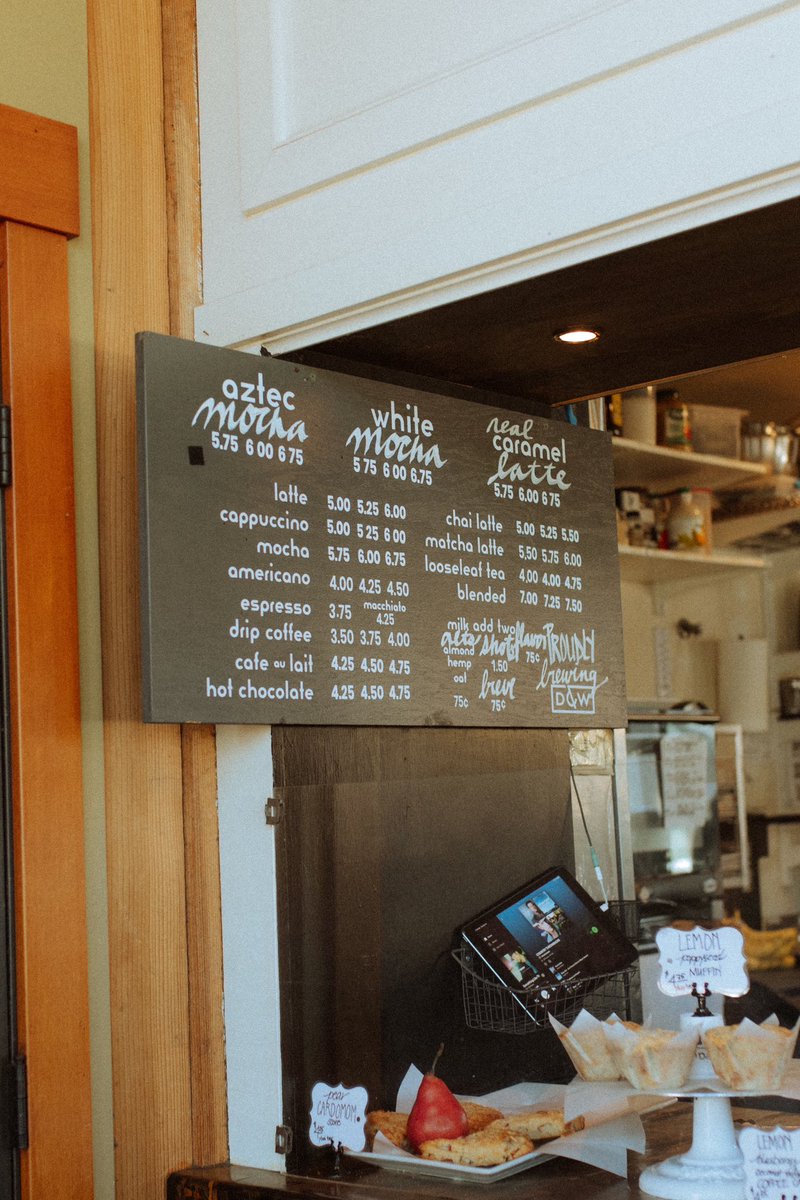 aztec
mocha
5.75 6.00 6.75
white
mocha
5.75 6.00 6.75
real
caramel
latte
5.75 6.00 6.75
latte 5.00 5.25 6.00
cappuccino 5.00 5.25 6.00
mocha 5.75 6.00 6.75
americano 4.00 4.25 4.50
espresso 3.75 macchiato 4.25
drip coffee 3.50 3.75 4.00
cafe au lait 4.25 4.50 4.75
hot chocolate 4.25 4.50 4.75
chai latte 5.00 5.25 5.50
matcha latte 5.50 5.75 6.00
looseleaf tea 4.00 4.00 4.75
blended 7.00 7.25 7.50
milk
alts
almond
hemp
oat
75¢
add two
shots
1.50
breve
75¢
flavor
75¢
PROUDLY
brewing
D&W
LEMON
poppyseed
MUFFIN
pear
CARDOMOM
LEMON